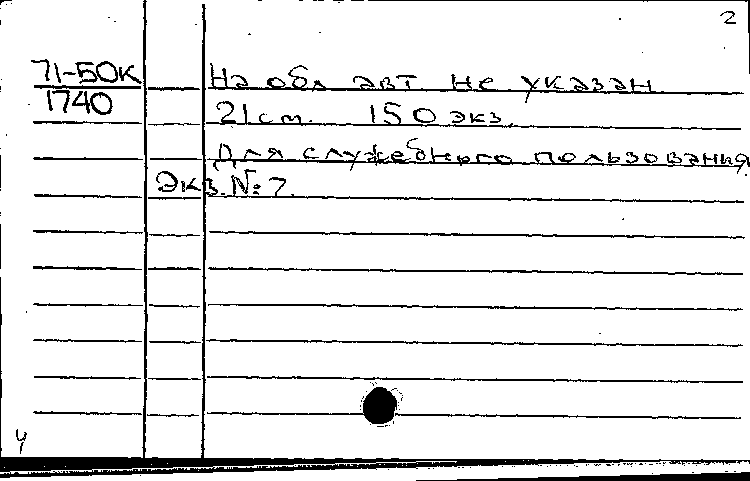 2
71-50к На обл авт не указан
1740 21 см. 150 экз.
Для служебного пользования.
Экз. №7.
ч